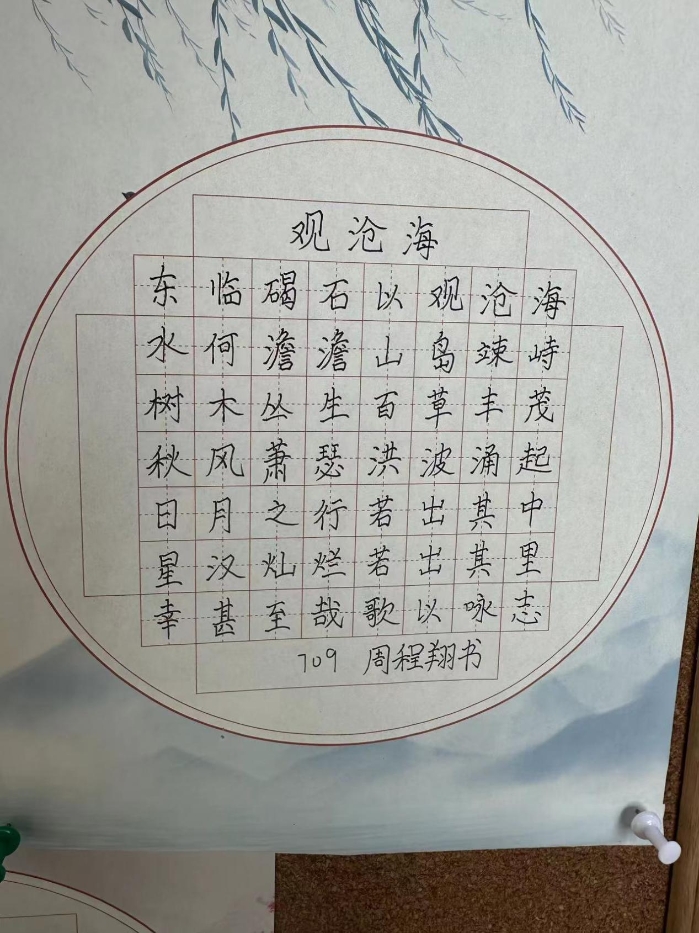 观沧海
东临碣石以观沧海
水何澹澹山岛竦峙
树木丛生百草丰茂
秋风萧瑟洪波涌起
日月之行若出其中
星汉灿烂若出其里
幸甚至哉歌以咏志
709 周程翔书